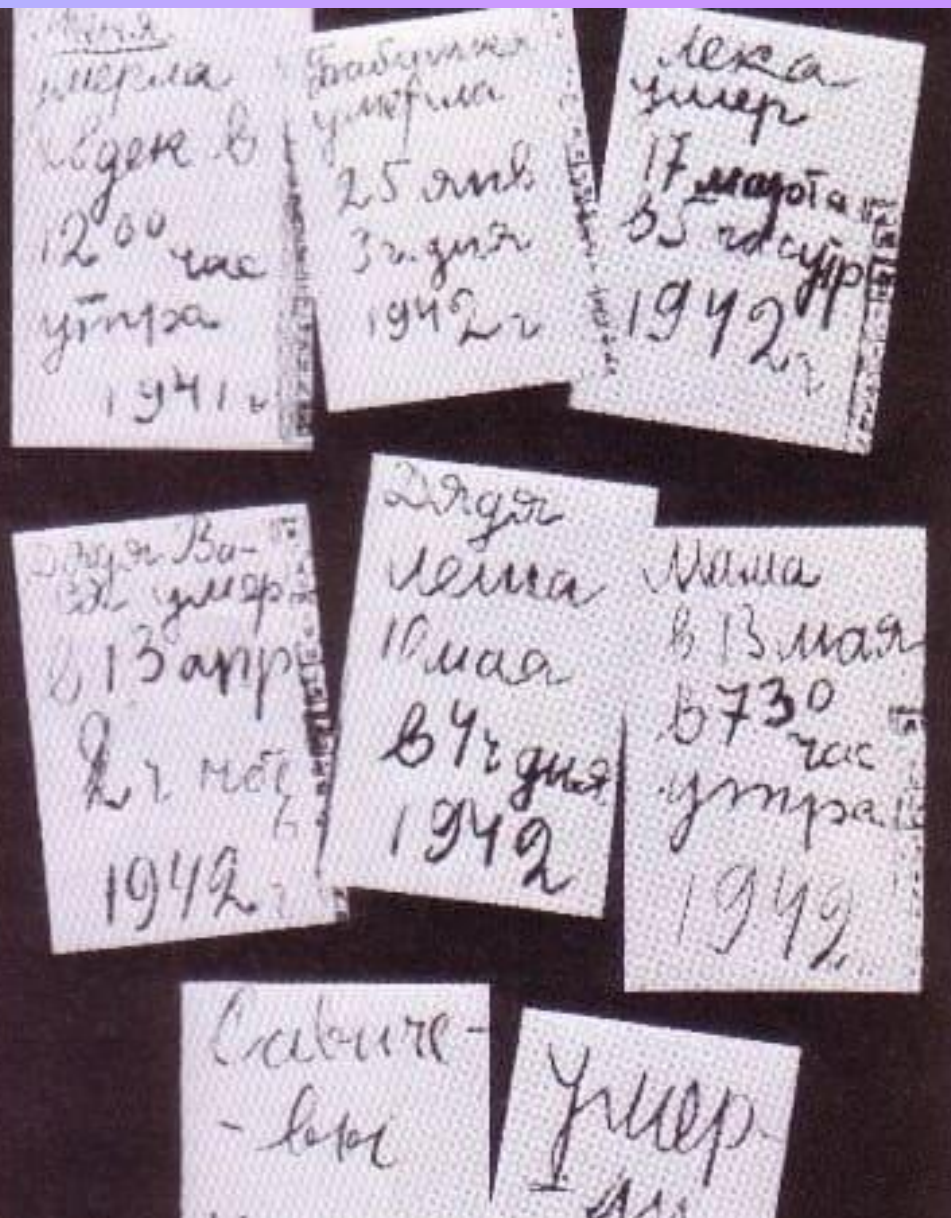 Женя
умерла
28 дек в
12 00 час
утра
1941 г
Бабушка
умерла
25 янв
3 ч. дня
1942 г
Лека
умер
17 марта
в 5 час утр
1942 г
Дядя Ва-
ся умер
в 13 апр
2 ч ночь
1942 г
Дядя
Леша
10 мая
в 4 ч дня
1942
Мама
в 13 мая
в 7 30
час
утра
1942
Савиче-
-вы
Умер-
ли